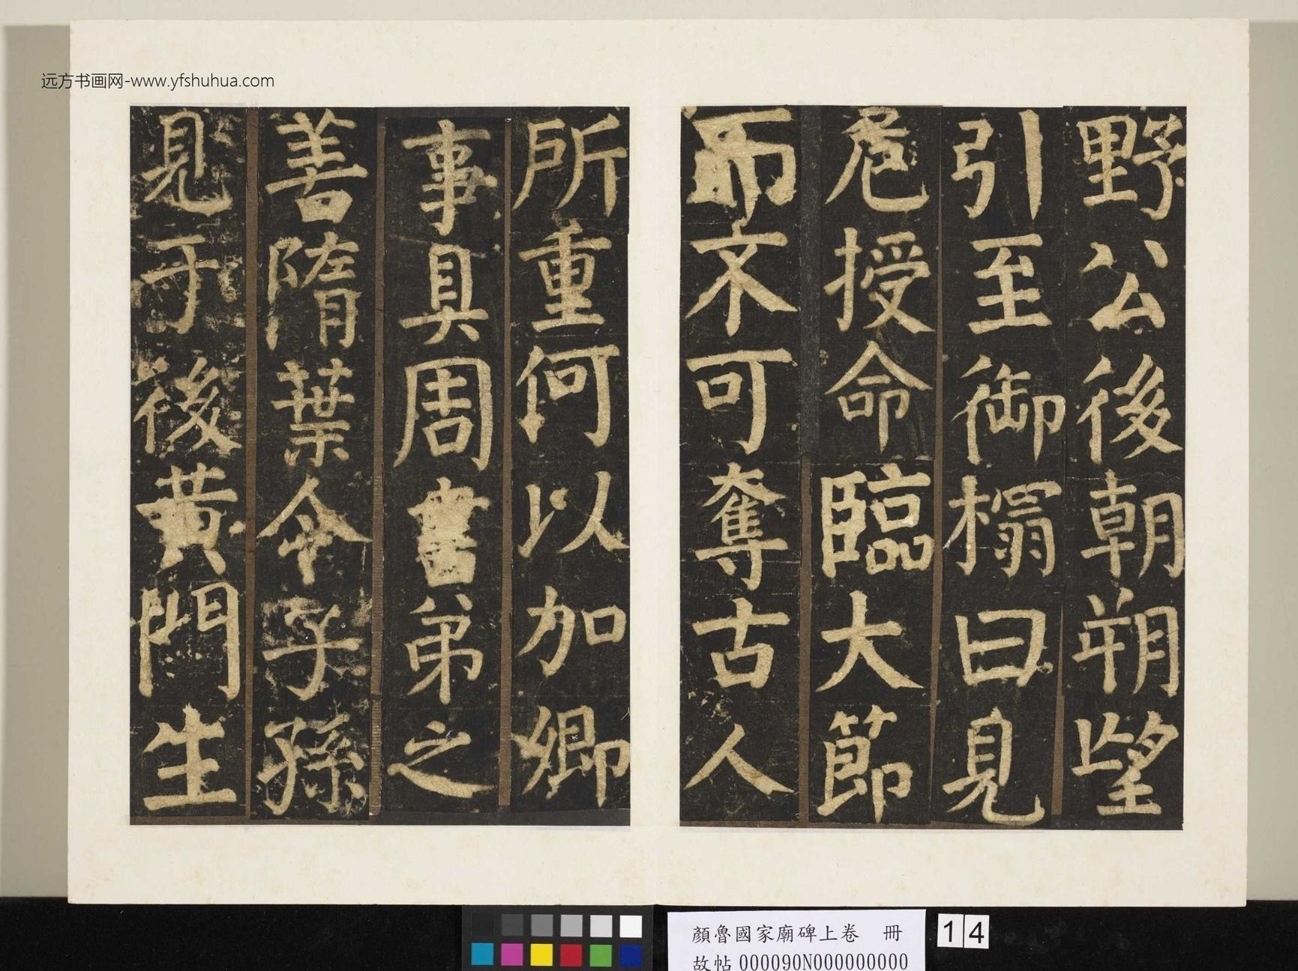 远方书画网-www.yfshuhua.com
野公後朝朔望
引至御榻曰見
危授命臨大節
而不可奪古人
所重何以加卿
事具周書弟之
善隋葉令子孫
見于後黃門生
顏魯國家廟碑上卷 冊
14
故帖 000090N000000000